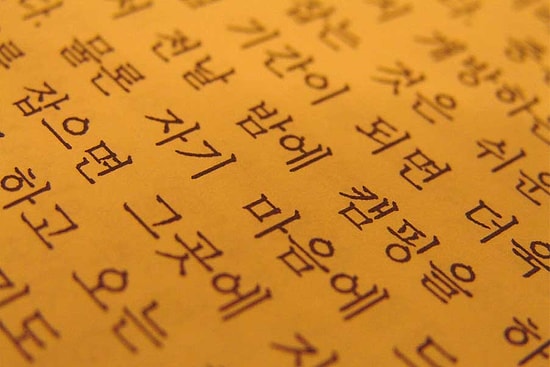 개방하는
잡는 것은 쉬운
기간이 되면 더욱
전날 밤에 캠핑을 하
다. 물론 자기 마음에 드
를 잡으면 그곳에
하고 오는
도